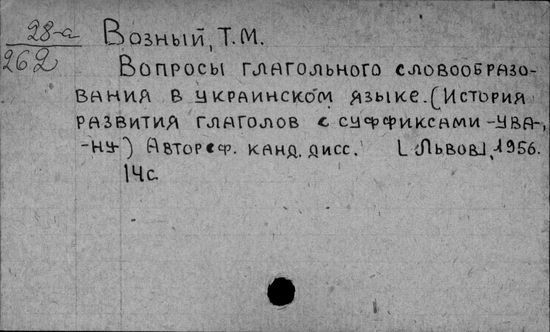 28-а
262
Возный, Т.М.
Вопросы глагольного словообразо-
вания в украинском языке. (История
развития глаголов с суффиксами -ува-,
-ну-) Автореф. канд. дисс. [Львов], 1956.
14с.